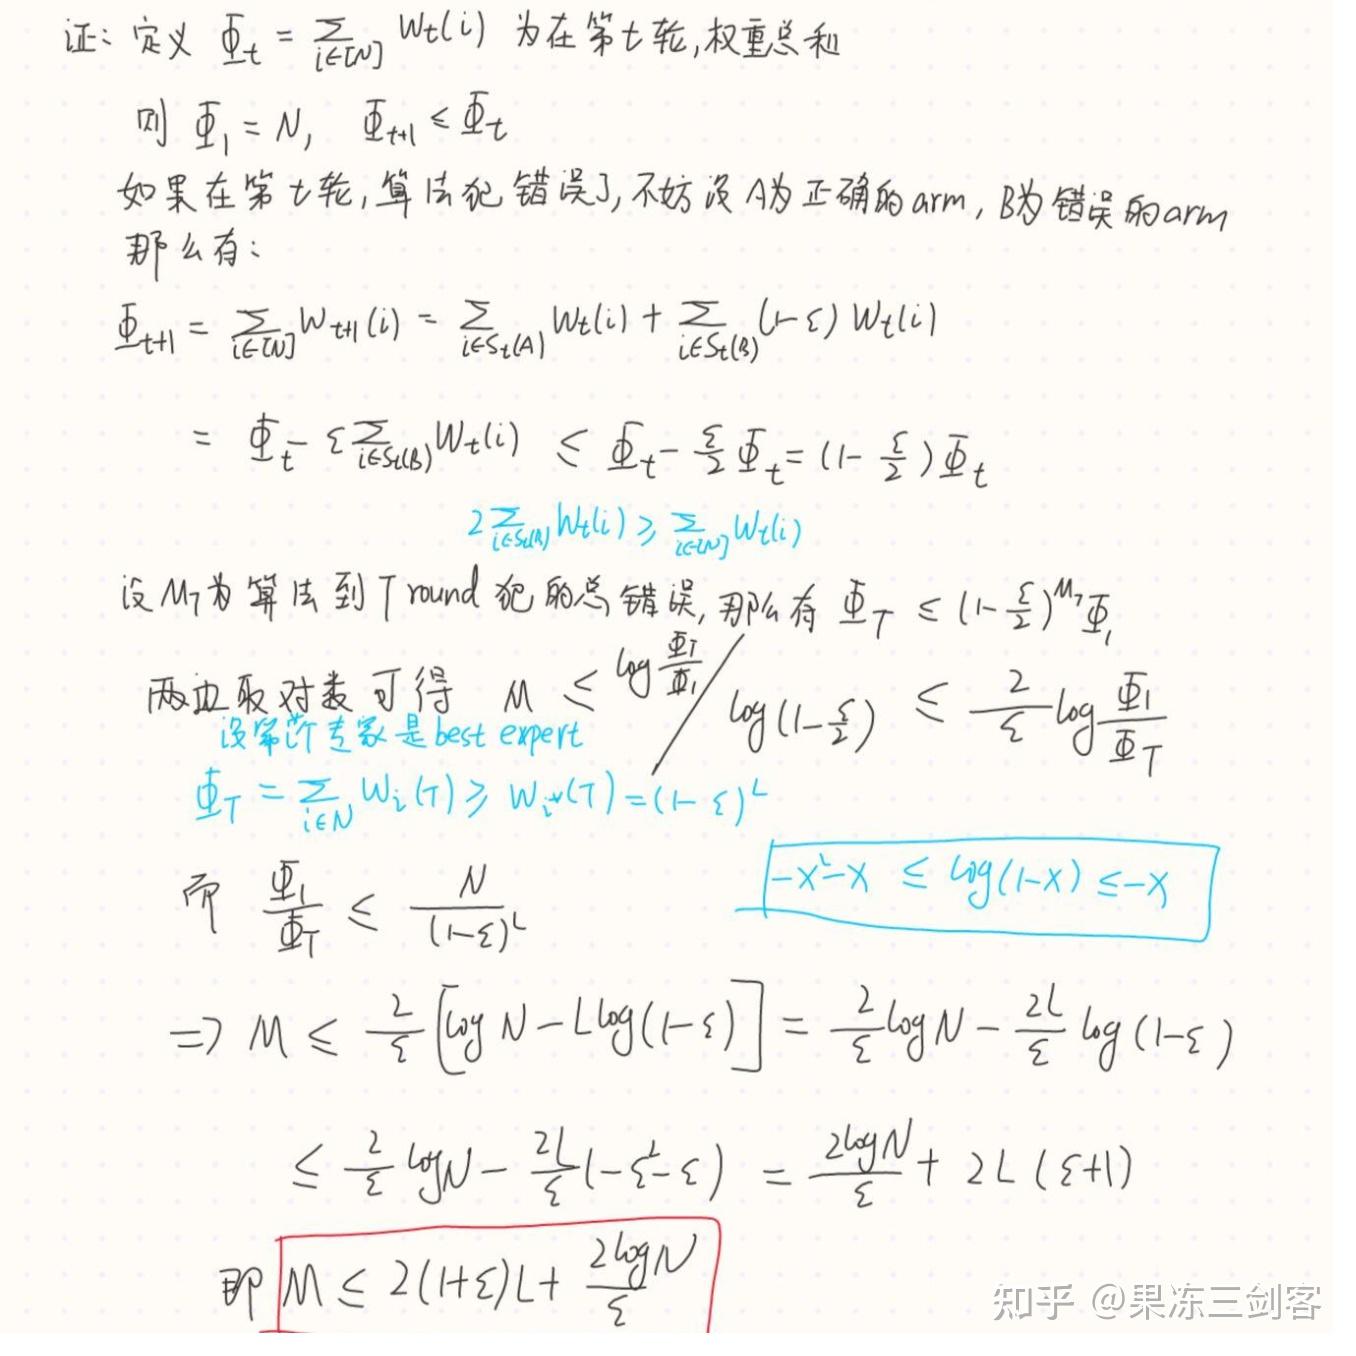 证：定义 Φ_t = Σ_{i∈[N]} W_t(i) 为在第t轮,权重总和
则 Φ_1 = N, Φ_{t+1} ≤ Φ_t
如果在第t轮,算法犯错误了,不妨设A为正确的arm, B为错误的arm
那么有：
Φ_{t+1} = Σ_{i∈[N]} W_{t+1}(i) = Σ_{i∈S_t(A)} W_t(i) + Σ_{i∈S_t(B)} (1-ε) W_t(i)
= Φ_t - ε Σ_{i∈S_t(B)} W_t(i) ≤ Φ_t - ε/2 Φ_t = (1 - ε/2) Φ_t
2 Σ_{i∈S_t(B)} W_t(i) ≥ Σ_{i∈[N]} W_t(i)
设M_T为算法到T round犯的总错误,那么有 Φ_T ≤ (1 - ε/2)^{M_T} Φ_1
两边取对数可得 M ≤ log Φ_T/Φ_1 / log(1 - ε/2) ≤ 2/ε log Φ_1/Φ_T
设第i*个专家是best expert
Φ_T = Σ_{i∈N} W_i(T) ≥ W_{i*}(T) = (1-ε)^L
-x²-x ≤ log(1-x) ≤ -x
而 Φ_1/Φ_T ≤ N/(1-ε)^L
=> M ≤ 2/ε [log N - L log(1-ε)] = 2/ε log N - 2L/ε log(1-ε)
≤ 2/ε log N - 2L/ε (-ε²-ε) = 2logN/ε + 2L(ε+1)
即 M ≤ 2(1+ε)L + 2logN/ε
知乎 @果冻三剑客